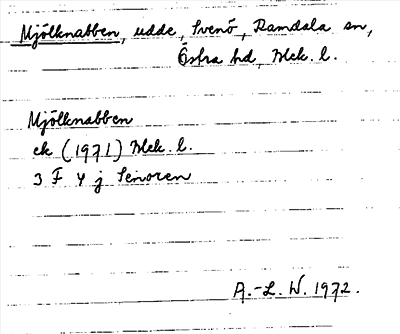 Mjölknabben, udde, Svenö, Ramdala sn,
Östra hd, Blek. l.
Mjölknabben
ek (1971) Blek. l.
3 F 4 j Senoren
A.-L. W. 1972.